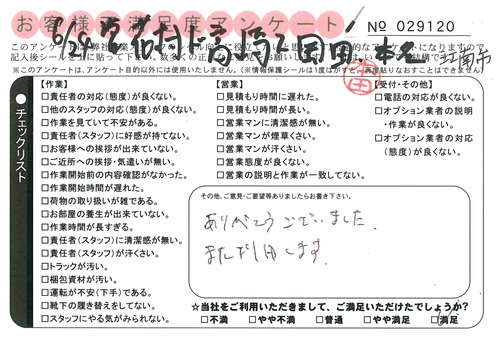 お客様満足度アンケート
№ 029120
【作業】
□責任者の対応(態度)が良くない。
□他のスタッフの対応(態度)が良くない。
□作業を見ていて不安がある。
□責任者(スタッフ)に好感が持てない。
□お客様への挨拶が出来ていない。
□ご近所への挨拶・気遣いが無い。
□作業開始前の内容確認がなかった。
□作業開始時間が遅れた。
□荷物の取り扱いが雑である。
□お部屋の養生が出来ていない。
□作業時間が長すぎる。
□責任者(スタッフ)に清潔感が無い。
□責任者(スタッフ)が汗くさい。
□トラックが汚い。
□梱包資材が汚い。
□運転が不安(下手)である。
□靴下の履き替えをしてない。
□スタッフにやる気がみられない。
チェックリスト
【営業】
□見積もり時間に遅れた。
□見積もり時間が長い。
□営業マンに清潔感が無い。
□営業マンが煙草くさい。
□営業マンが汗くさい。
□営業態度が良くない。
□営業の説明と作業が一致してない。
【受付・その他】
□電話の対応が良くない。
□オプション業者の説明
・作業が良くない。
□オプション業者の対応
(態度)が良くない。
その他、ご意見・ご要望等ありましたらお書き下さい。
ありがとうございました。
また利用します。
☆当社をご利用いただきまして、ご満足いただけたでしょうか?
□不満 □やや不満 □普通 □やや満足 □満足